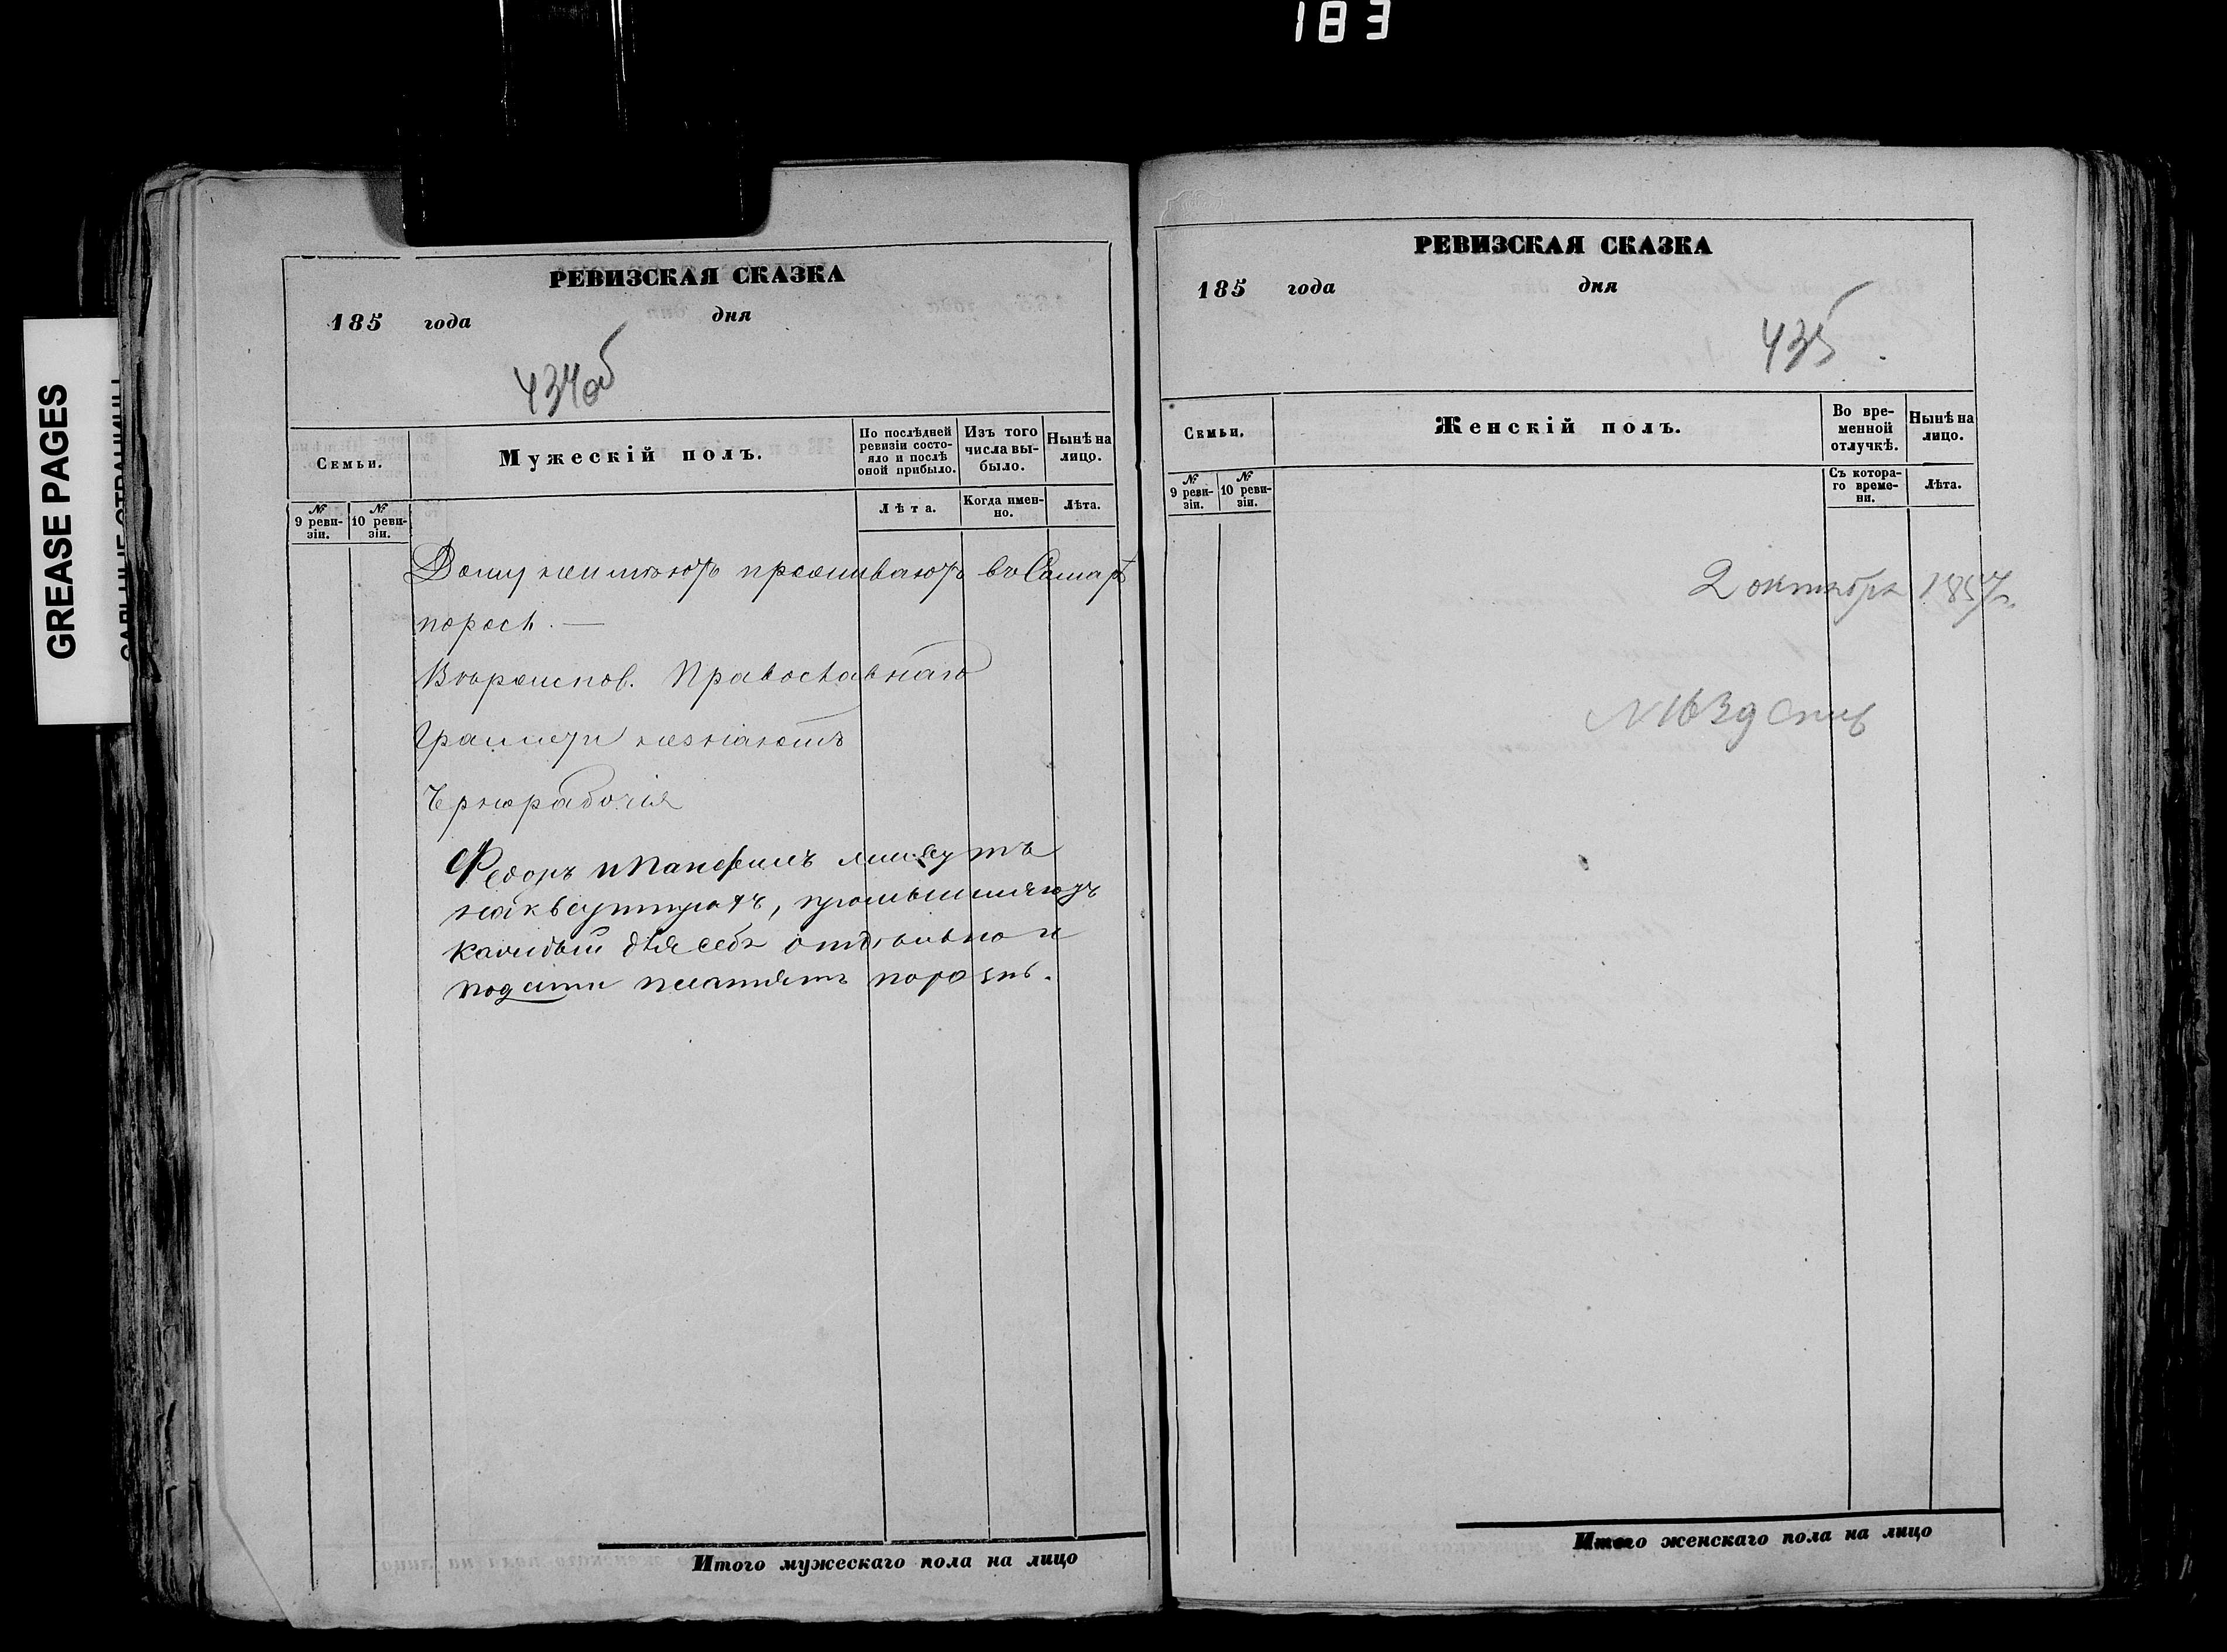 183
GREASE PAGES
РЕВИЗСКАЯ СКАЗКА
185 года дня
434об
Семьи.
Мужескій полъ.
По послѣдней ревизіи состояло и послѣ оной прибыло.
Изъ того числа выбыло.
Нынѣ на лицо.
№ 9 ревизіи.
№ 10 ревизіи.
Лѣта.
Когда именно.
Лѣта.
Дому неимѣютъ проживаютъ въ Самарѣ
порознь. —
Вѣроиспов. Православнаго
Грамоты незнаютъ
Чернорабочія
Федоръ и Панфилъ живутъ
на квартирахъ, промышляютъ
каждый для себя отдѣльно и
подати платятъ порознь.
Итого мужескаго пола на лицо
РЕВИЗСКАЯ СКАЗКА
185 года дня
435
Семьи.
Женскій полъ.
Во временной отлучкѣ.
Нынѣ на лицо.
№ 9 ревизіи.
№ 10 ревизіи.
Съ котораго времени.
Лѣта.
2 октября 1857 г.
Итого женскаго пола на лицо